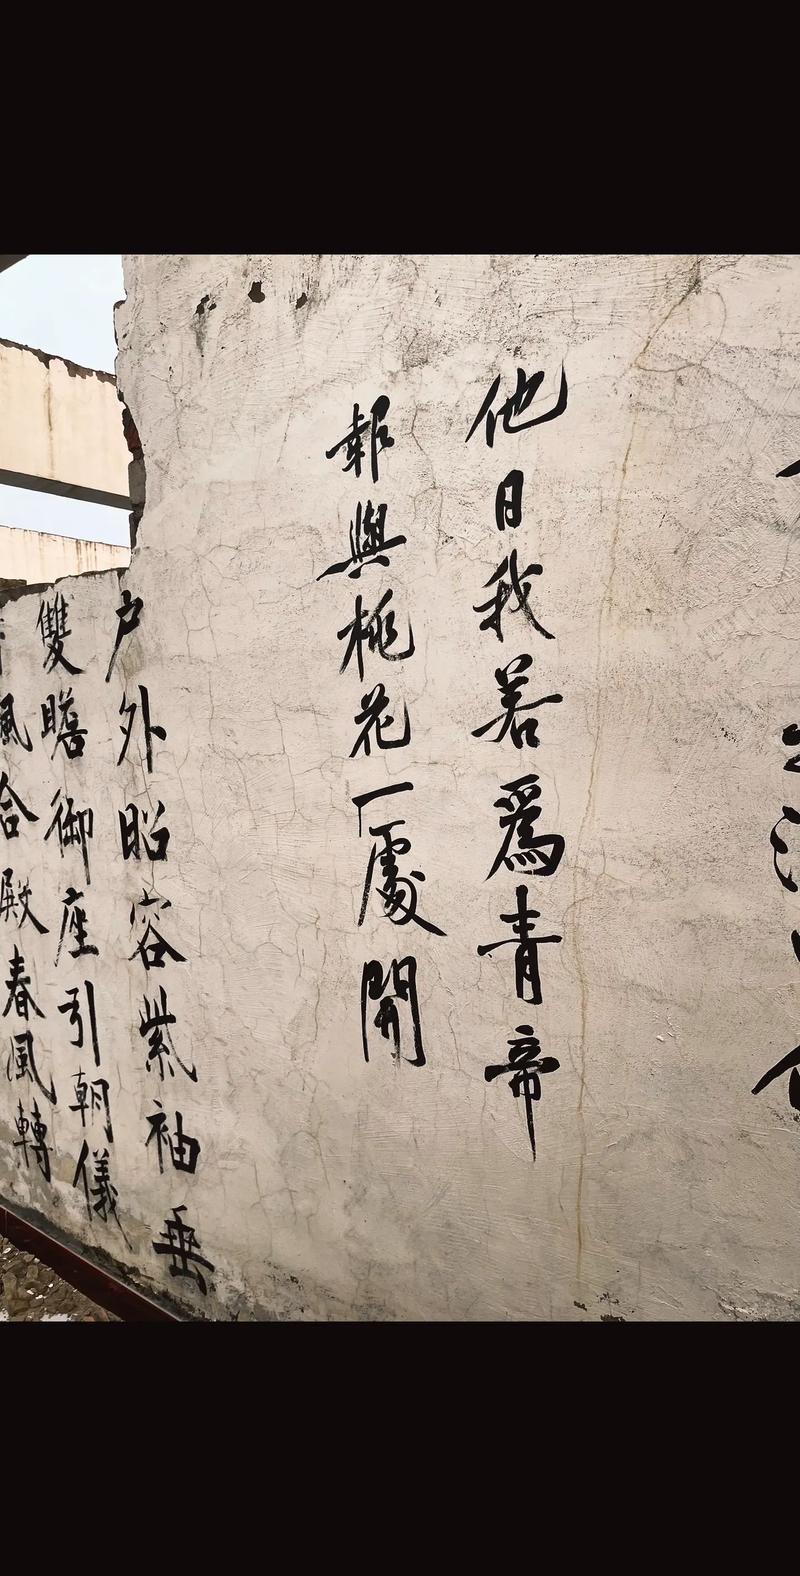 他日我若爲青帝
報與桃花一處開
戶外昭容紫袖垂
雙瞻御座引朝儀
風合殿春風轉